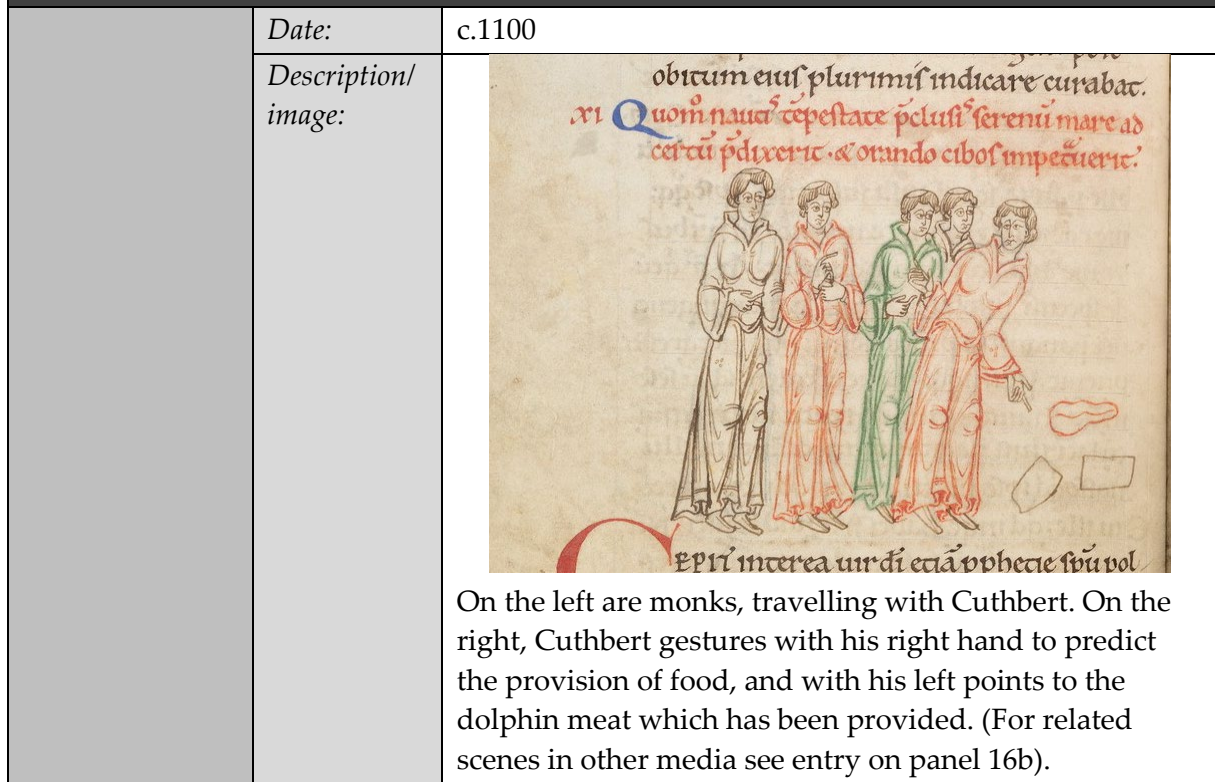 Date:
c.1100
Description/
image:
obitum eiuſ plurimiſ indicare curabat.
XI Quom̊ nauciſ tēpeſtate p̄cluſiſ ſerenū mare ad
certū p̄dixerit · & orando ciboſ impet̃uerit.
EPIT interea uir dī etiā ꝓphetię ſpū pol
On the left are monks, travelling with Cuthbert. On the
right, Cuthbert gestures with his right hand to predict
the provision of food, and with his left points to the
dolphin meat which has been provided. (For related
scenes in other media see entry on panel 16b).